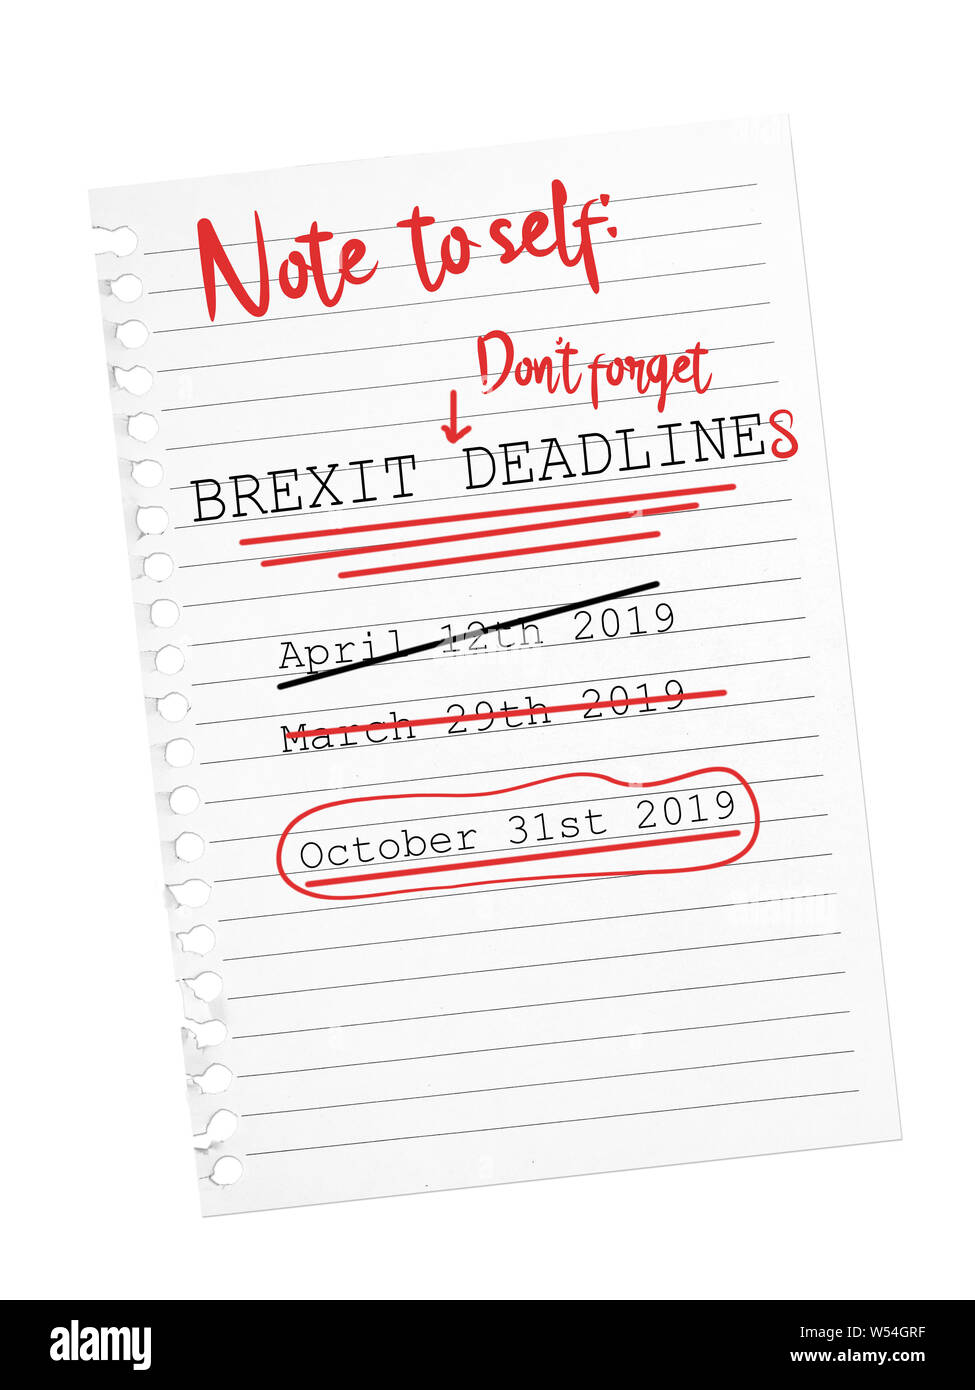 Note to self:
Don't forget
BREXIT DEADLINES
April 12th 2019
March 29th 2019
October 31st 2019
alamy
Image ID: W54GRF
www.alamy.com